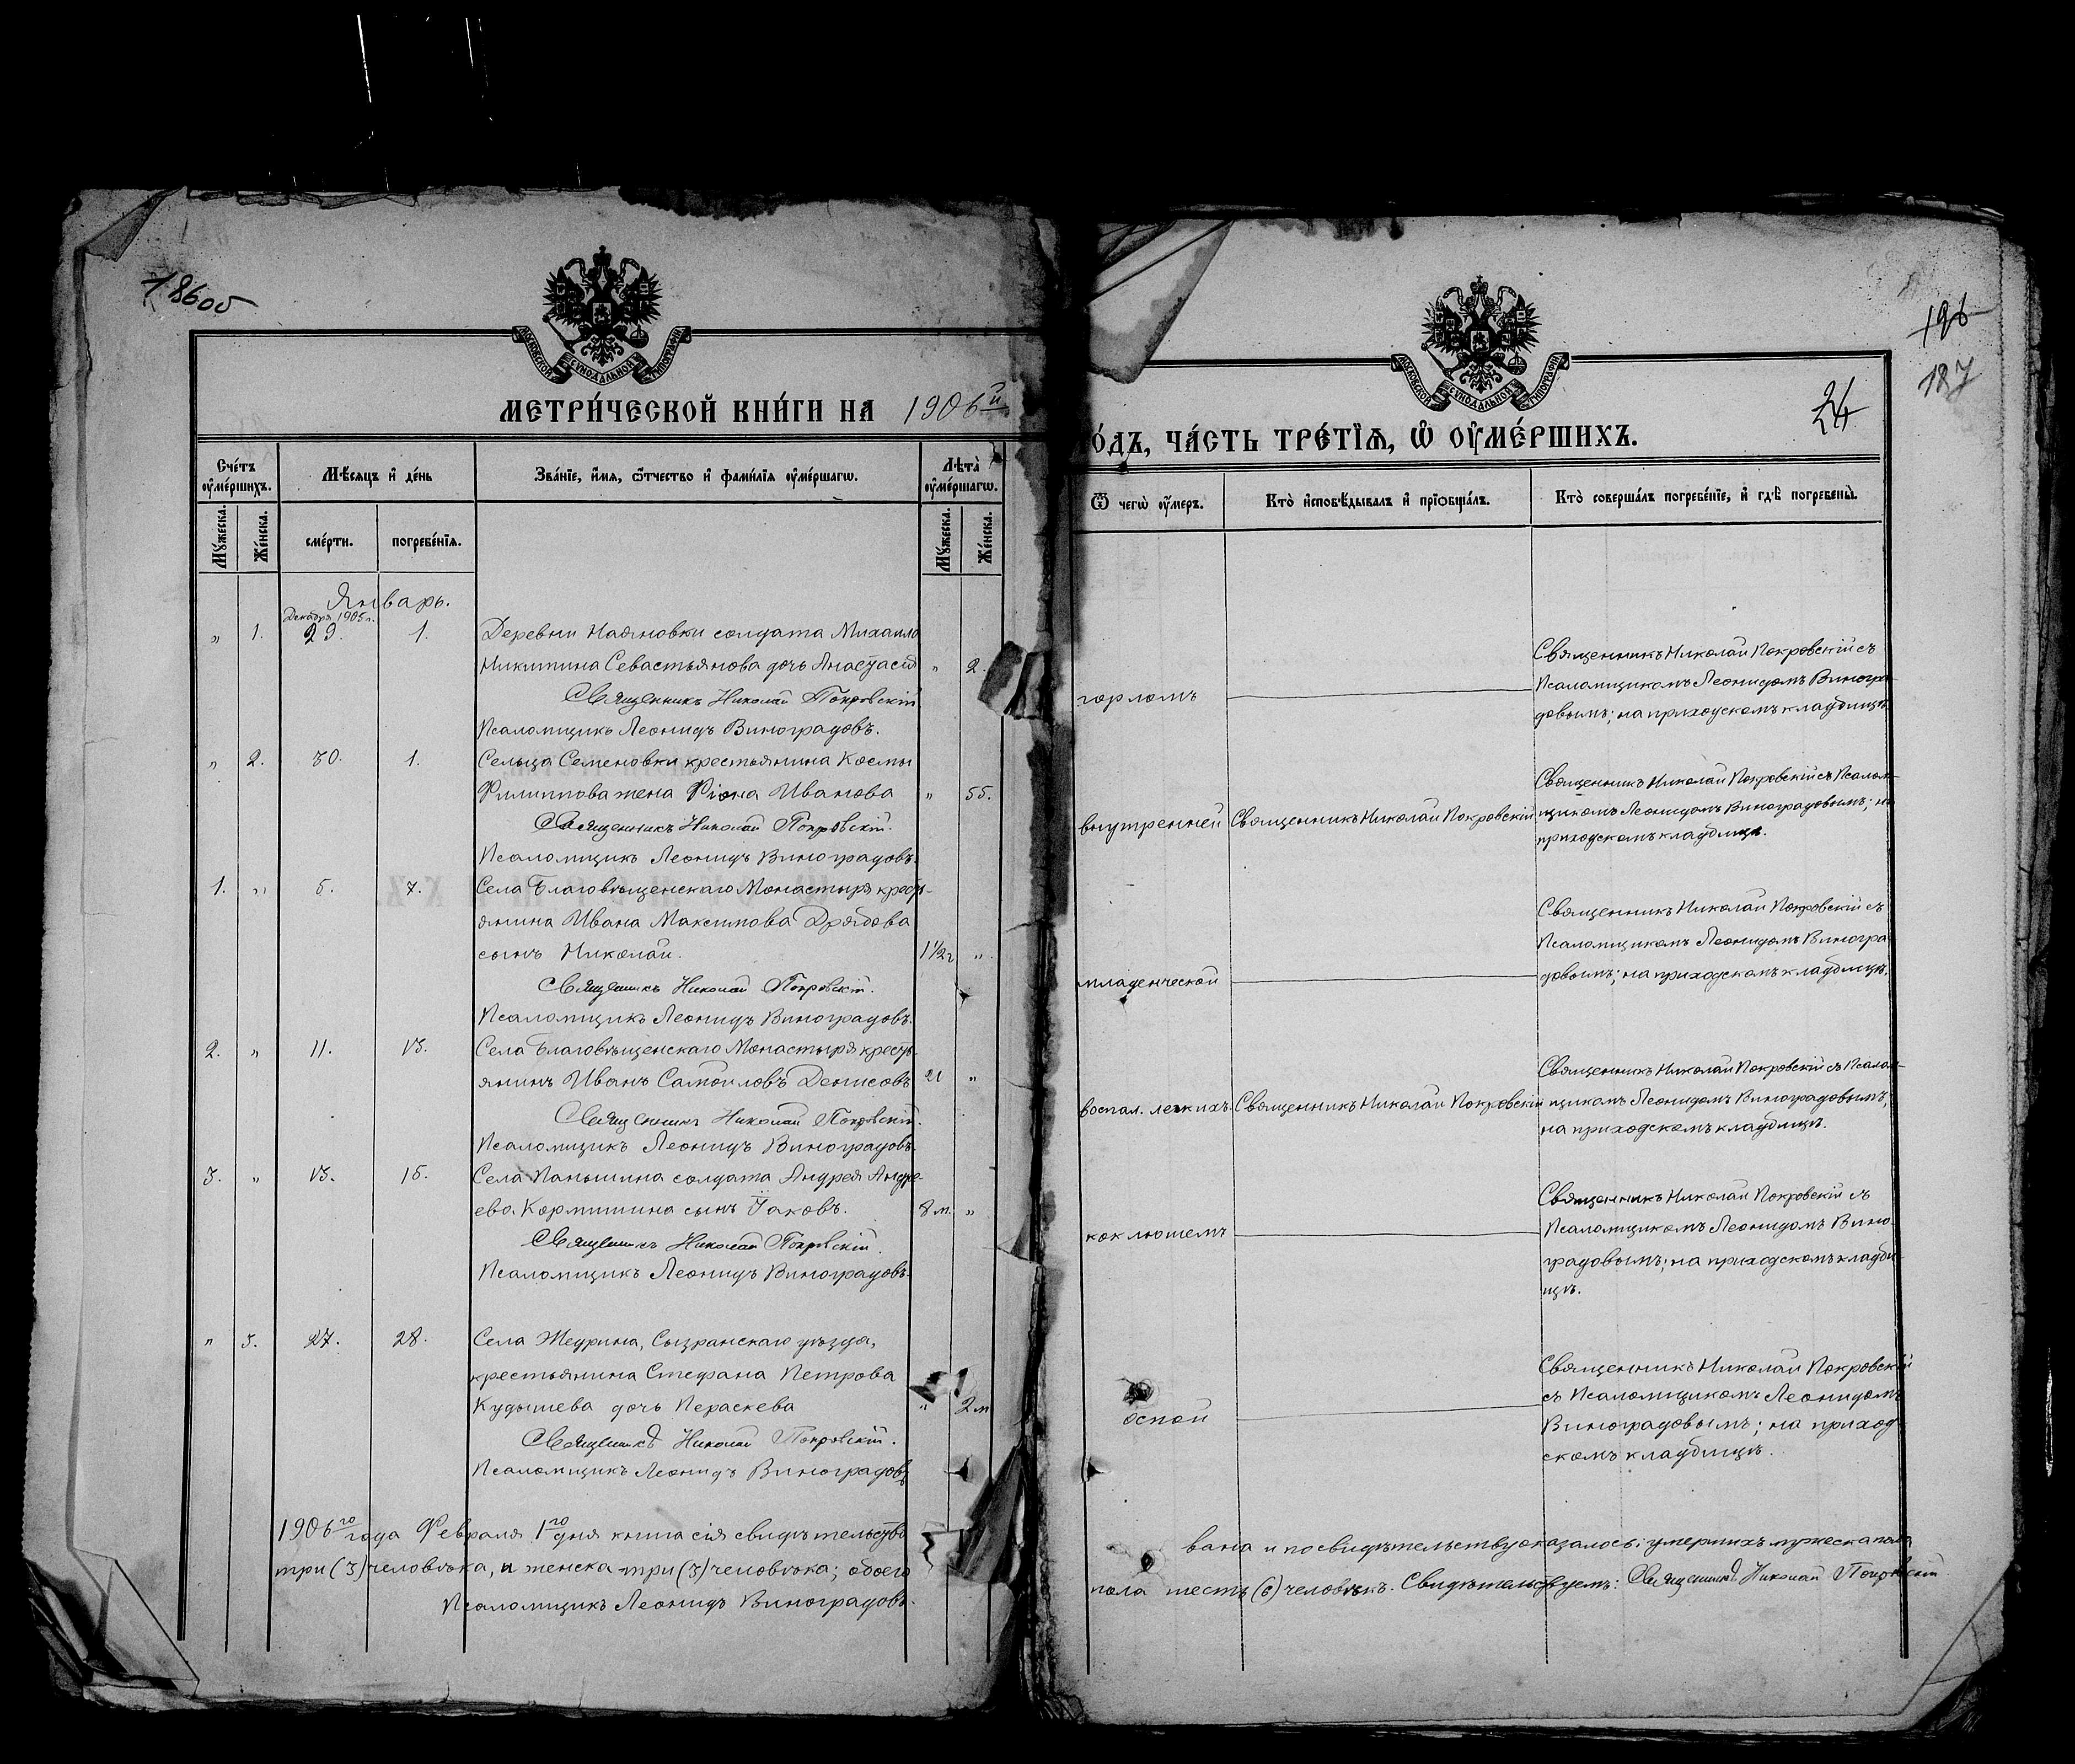 186об
196
187
24
МОСКОВСКОЙ СѴНОДАЛЬНОЙ ТИПОГРАФІИ
МОСКОВСКОЙ СѴНОДАЛЬНОЙ ТИПОГРАФІИ
МЕТРИ́ЧЕСКОЙ КНИ́ГИ НА 1906й
О́ДЪ, ЧА́СТЬ ТРЕ́ТІѦ, Ѡ҆ ОУ҆МЕ́РШИХЪ.
Сче́тъ оу҆ме́ршихъ.
Мѣ́сяцъ и҆ де́нь
Зва́ніе, и҆́мя, ѻ҆́тчество и҆ фами́лія оу҆ме́ршагѡ.
Лѣта̀ оу҆ме́ршагѡ.
Ѿ чегѡ̀ оу҆́меръ.
Кто̀ и҆сповѣ́дывалъ и҆ прїѻбща́лъ.
Кто̀ соверша́лъ погребе́ніе, и҆ гдѣ̀ погребены̀.
Му́жеска. Же́нска. сме́рти. погребе́нія. Му́жеска. Же́нска.
Январь.
Декабря 1905 г.
" 1. 29. 1. Деревни Надяновки солдата Михаила
Никитина Севастьянова дочь Анастасія " 2.
Священникъ Николай Покровскій
Псаломщикъ Леонидъ Виноградовъ.
горломъ
Священникъ Николай Покровскій съ
Псаломщикомъ Леонидомъ Виногра-
довымъ; на приходскомъ кладбищѣ
" 2. 30. 1. Сельца Семеновки крестьянина Космы
Филиппова жена Фіона Иванова " 55.
Священникъ Николай Покровскій.
Псаломщикъ Леонидъ Виноградовъ.
внутренней Священникъ Николай Покровскій
Священникъ Николай Покровскій съ Псалом-
щикомъ Леонидомъ Виноградовымъ; на
приходскомъ кладбищѣ.
1. " 5. 7. Села Благовѣщенскаго Монастыря кресть-
янина Ивана Максимова Дрябова
сынъ Николай. 1 1/2 г "
Священникъ Николай Покровскій.
Псаломщикъ Леонидъ Виноградовъ.
младенческой
Священникъ Николай Покровскій съ
Псаломщикомъ Леонидомъ Виногра
довымъ; на приходскомъ кладбищѣ.
2. " 11. 13. Села Благовѣщенскаго Монастыря кресть-
янинъ Иванъ Самойловъ Денисовъ 21 "
Священникъ Николай Покровскій.
Псаломщикъ Леонидъ Виноградовъ.
воспал. легкихъ. Священникъ Николай Покровскій
Священникъ Николай Покровскій съ Псалом-
щикомъ Леонидомъ Виноградовымъ;
на приходскомъ кладбищѣ.
3. " 13. 15. Села Паньшина солдата Андрея Андре-
ева Кормишина сынъ Іаковъ. 8 м. "
Священникъ Николай Покровскій.
Псаломщикъ Леонидъ Виноградовъ.
коклюшемъ
Священникъ Николай Покровскій съ
Псаломщикомъ Леонидомъ Вино-
градовымъ; на приходскомъ кладби-
щѣ.
" 3. 27. 28. Села Жедрина, Сызранскаго уѣзда,
крестьянина Стефана Петрова
Кудышева дочь Параскева " 2 м
Священникъ Николай Покровскій.
Псаломщикъ Леонидъ Виноградовъ
оспой
Священникъ Николай Покровскій
съ Псаломщикомъ Леонидомъ
Виноградовымъ; на приход-
скомъ кладбищѣ.
1906го года Февраля 1го дня книга сія свидѣтельство
вана и по свидѣтельству оказалось: умершихъ мужеска пола
три (3) человѣка, и женска три (3) человѣка; обоего
пола шесть (6) человѣкъ. Свидѣтельствуемъ: Священникъ Николай Покровскій
Псаломщикъ Леонидъ Виноградовъ.